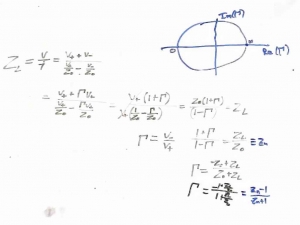 Im(Γ)
Re(Γ)
Z_L = V/I = (V₊ + V₋) / (V₊/Z₀ - V₋/Z₀)
= (V₊ + ΓV₊) / (V₊/Z₀ - ΓV₊/Z₀) = V₊(1+Γ) / V₊(1/Z₀ - Γ/Z₀) = Z₀(1+Γ) / (1-Γ) = Z_L
Γ = V₋/V₊ (1+Γ)/(1-Γ) = Z_L/Z₀ ≡ Zn
Γ = (-Z₀+Z_L) / (Z₀+Z_L)
Γ = = (Zn-1) / (Zn+1)